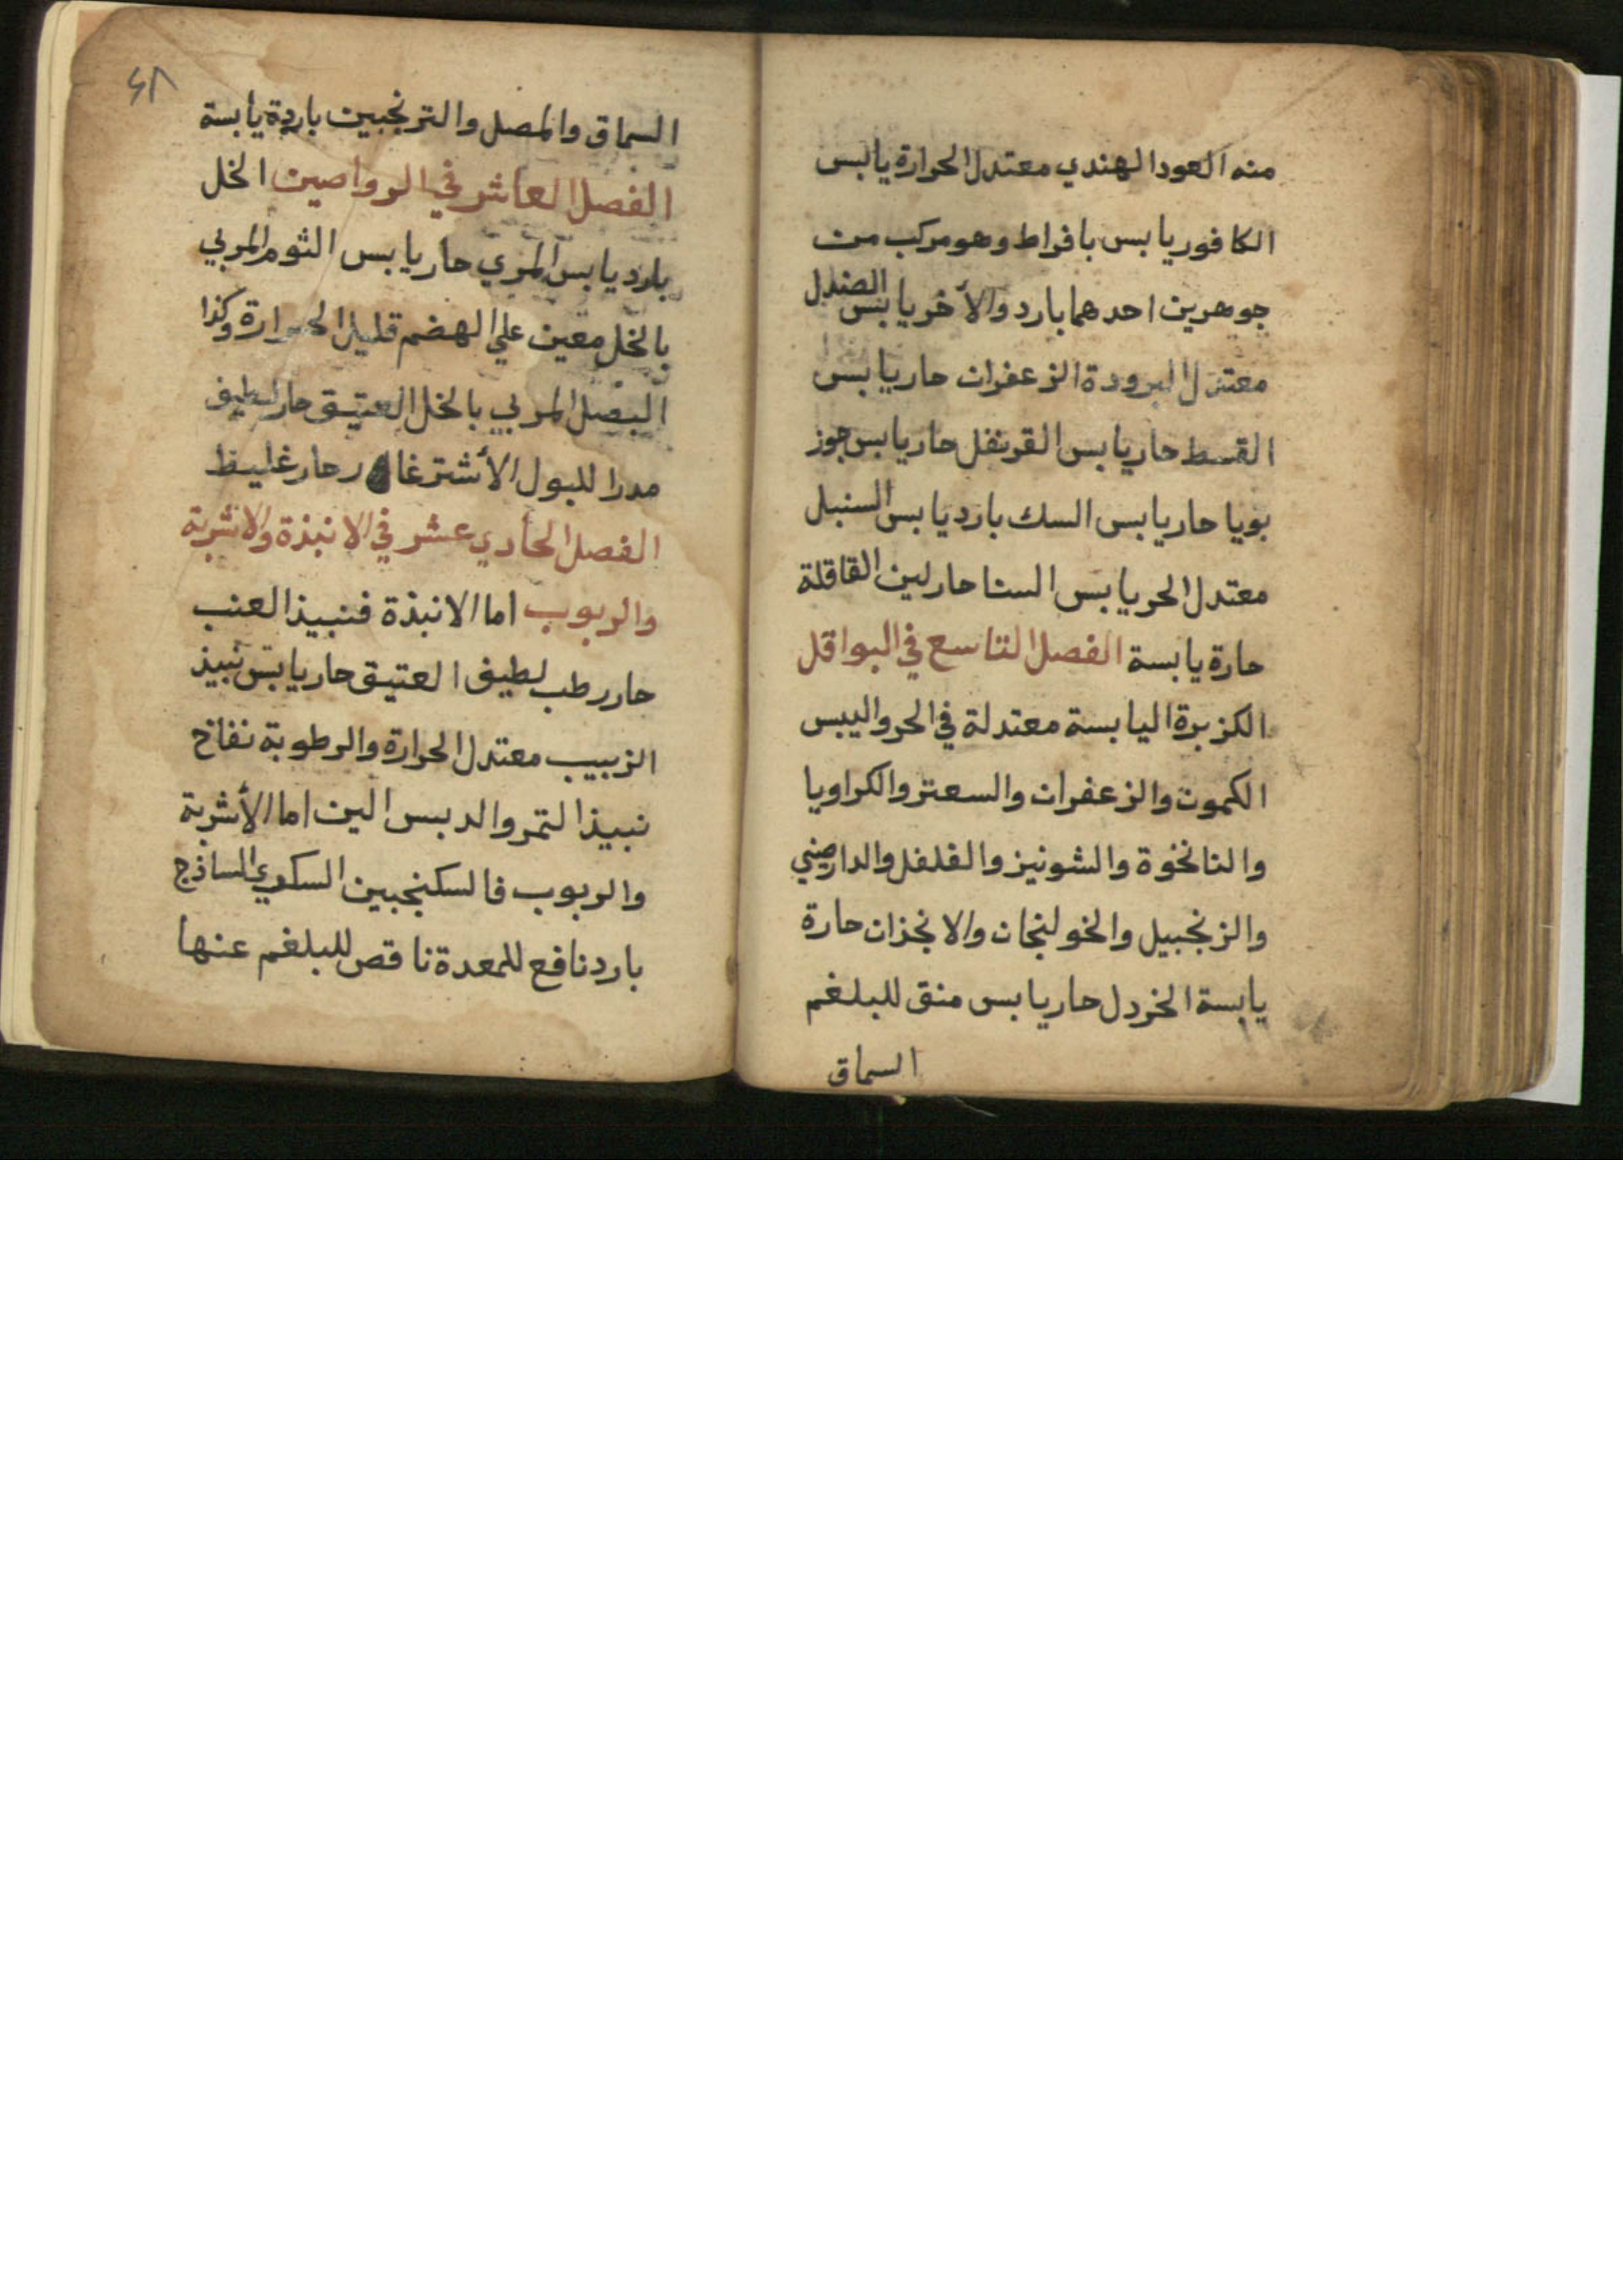 منه العود الهندي معتدل الحرارة يابس
الكافور يابس بافراط وهو مركب من
جوهرين احدهما بارد والآخر يابس الصندل
معتدل البرودة الزعفران حار يابس
القسط حار يابس القرنفل حار يابس جوز
بويا حار يابس السك بارد يابس السنبل
معتدل الحر يابس السنا حار لين القاقلة
حارة يابسة الفصل التاسع في البواقل
الكزبرة اليابسة معتدلة في الحر واليبس
الكمون والزعفران والسعتر والكراويا
والنانخوة والشونيز والفلفل والدارصيني
والزنجبيل والخولنجان والانجذان حارة
يابسة الخردل حار يابس منق للبلغم
السماق
٤٨
السماق والمصل والترنجبين باردة يابسة
الفصل العاشر في الرواصين الخل
بارد يابس المري حار يابس الثوم المربي
بالخل معين علي الهضم قليل الحرارة وكذا
البصل المربي بالخل العتيق حار لطيف
مدرا للبول الأشترغار حار غليظ
الفصل الحادي عشر في الانبذة والاشربة
والربوب اما الانبذة فنبيذ العنب
حار رطب لطيف العتيق حار يابس نبيذ
الزبيب معتدل الحرارة والرطوبة نفاخ
نبيذ التمر والدبس الين اما الأشربة
والربوب فالسكنجبين السكري الساذج
بارد نافع للمعدة ناقص للبلغم عنها